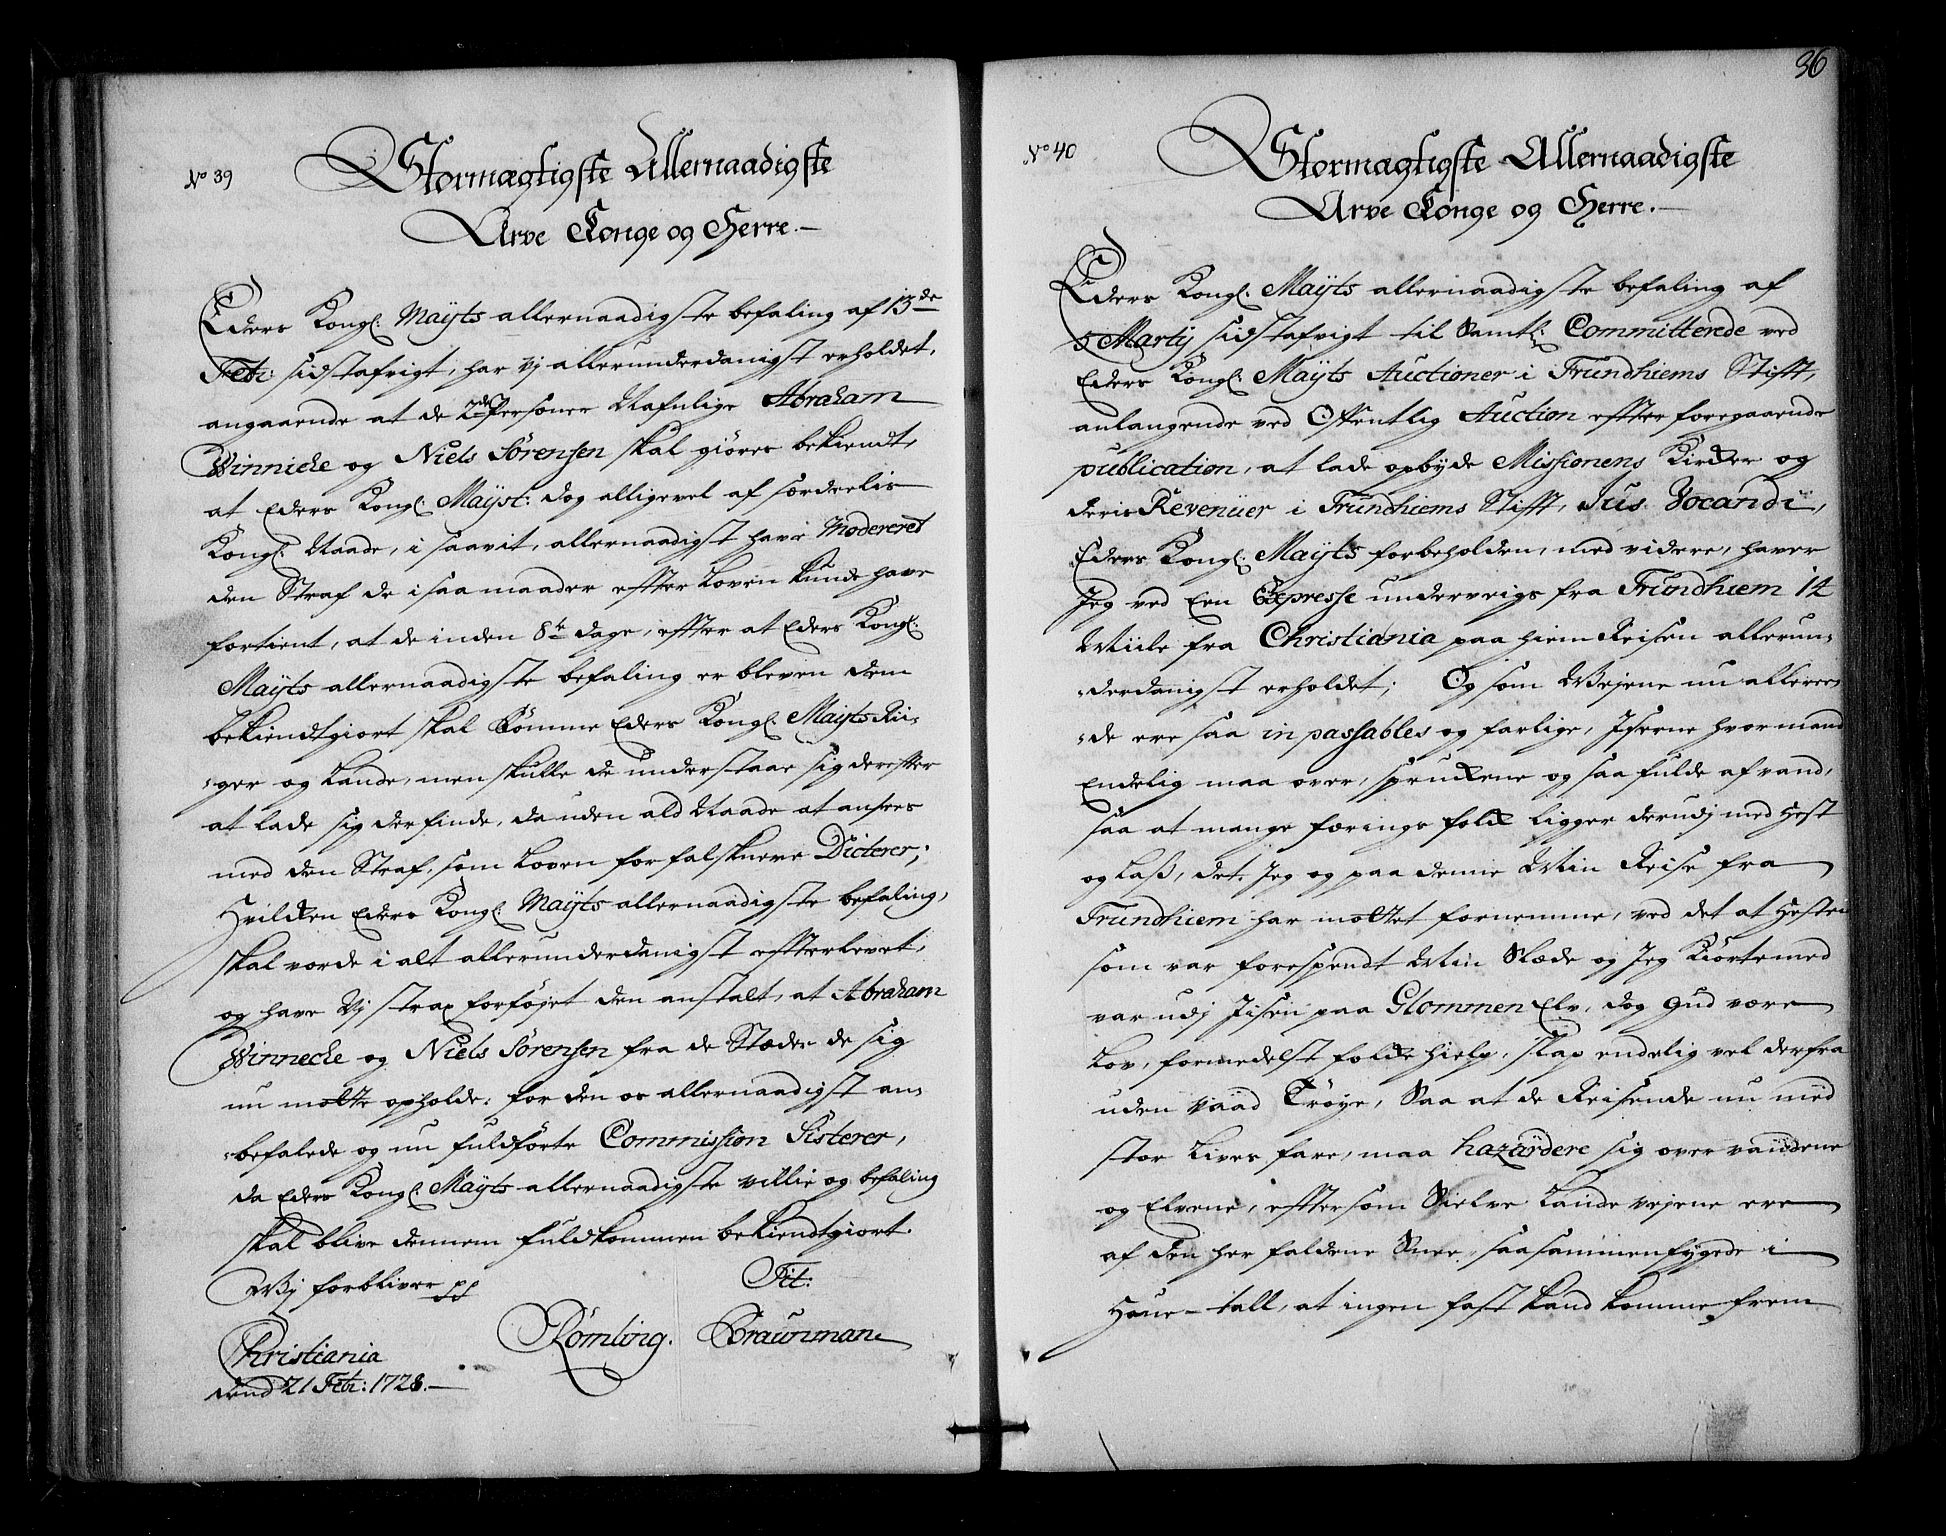 No 39
Stormægtigste Allernaadigste
Arve Konge og Herre.—
Eders Kongl: Mayts allernaadigste befaling af 13de
Febr: sidstafvigt, har Vj allerunderdanigst erholdet,
angaaende at de 2de Personer Nafnlige Abraham
Winniche og Niels Sörensen skal giöres bekiendt,
at Eders Kongl: Mayst: dog alligevel af særdeelis
Kongl: Naade, i saavit, allernaadigst have Modereret
den Straf de i saa maader effter Loven kunde have
fortient, at de inden 8te dage, effter at Eders Kongl:
Mayts allernaadigste befaling er bleven dem
bekiendtgiort skal Römme Eders Kongl: Mayts Rii-
-ger og Lande, men skulle de understaae sig dereffter
at lade sig der finde, da uden ald Naade at ansees
med den Straf, som Loven for falsknere Dicterer;
Hvilken Eders Kongl: Mayts allernaadigste befaling,
skal vorde i alt allerunderdanigst effterlevet,
og have Vj strax forföjet den anstalt, at Abraham
Winneche og Niels Sörensen fra de Stæder de sig
nu motte opholde, for den os allernaadigst an-
-befalede og nu fuldförte Commission Sisterer,
da Eders Kongl: Mayts allernaadigste villie og befaling
skal blive dennem fuldkommen bekiendtgiort.
Wj forbliver pp
Tit:
Römling. Braunman
Christiania
dend 21 Febr: 1728.—
36
No 40
Stormægtigste Allernaadigste
Arve Konge og Herre.—
Eders Kongl: Mayts allernaadigste befaling af
5 Martij sidstafvigt til Samtl: Committerede ved
Eders Kongl: Mayts Auctioner i Trundhiems Stifft,
anlangende ved Offentlig Auction effter foregaaende
publication, at lade opbyde Missionens Kirker og
deris Revenüer i Trundhiems Stifft, Jus Vocandi,
Eders Kongl: Mayts forbeholden, med videre, haver
Jeg ved Een Expresse underveigs fra Trundhiem 14
Miile fra Christiania paa hiem Reisen allerun-
-derdanigst erholdet; Og som Wejene nu alleree-
-de ere saa inpassables og farlige, Jserne hvor mand
Endelig maa over, sprukkene og saa fulde af vand,
saa at mange færinge folk ligger derudj med Hest
og Laß, det Jeg og paa denne Min Reise fra
Trundhiem har mottet fornemme, ved det at Hesten
som var forespendt Min Slæde og Jeg Kiörte med
var udj Jisen paa Glommen Elv, dog Gud være
Lov, formedelst folke hielp, slap endelig vel derfra
uden vaad Tröye, Saa at de Reisende nu med
stor Lives fare, maa hazardere sig over vandene
og Elvene, effter som Sielve Lande vejene ere
af den her faldene Snee, saa sammenfygede i
Houe-tall, at ingen fast kand komme frem